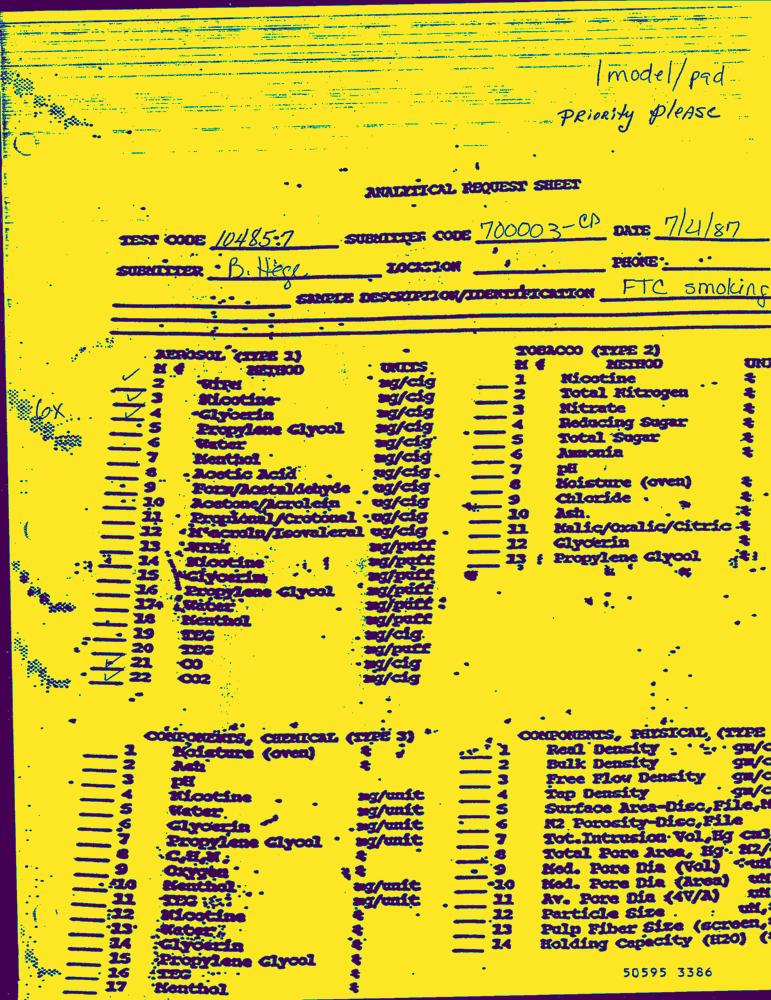 1 model/pad
Priority Please
ANALYTICAL REQUEST SHEET
TEST CODE 10485:7 SUBMITTER CODE 700003-CD DATE 7/21/87
SUBMITTER B. Hege LOCATION PHONE:
SAMPLE DESCRIPTION/IDENTIFICATION FTC smoking
AEROSOL (TYPE 1)
M # METHOD UNITS
2 WTPM mg/cig
3 Nicotine mg/cig
4 Glycerin mg/cig
5 Propylene Glycol mg/cig
6 Water mg/cig
7 Menthol mg/cig
8 Acetic Acid ug/cig
9 Form/Acetaldehyde ug/cig
10 Acetone/Acrolein ug/cig
11 Propional/Crotonal ug/cig
12 M'acroln/Isovaleral ug/cig
13 WTPM mg/puff
14 Nicotine mg/puff
15 Glycerin mg/puff
16 Propylene Glycol mg/puff
17 Water mg/puff
18 Menthol mg/puff
19 TEG mg/cig
20 TEG mg/puff
21 CO mg/cig
22 CO2 mg/cig
6x
TOBACCO (TYPE 2)
M # METHOD UNI
1 Nicotine %
2 Total Nitrogen %
3 Nitrate %
4 Reducing Sugar %
5 Total Sugar %
6 Ammonia %
7 pH
8 Moisture (oven) %
9 Chloride %
10 Ash %
11 Malic/Oxalic/Citric %
12 Glycerin %
13 Propylene Glycol %
COMPONENTS, CHEMICAL (TYPE 3)
1 Moisture (oven) %
2 Ash %
3 pH
4 Nicotine mg/unit
5 Water mg/unit
6 Glycerin mg/unit
7 Propylene Glycol mg/unit
8 C,H,N %
9 Oxygen %
10 Menthol mg/unit
11 TEG mg/unit
12 Nicotine %
13 Water %
14 Glycerin %
15 Propylene Glycol %
16 TEG %
17 Menthol %
COMPONENTS, PHYSICAL, (TYPE
1 Real Density gm/c
2 Bulk Density gm/c
3 Free Flow Density gm/c
4 Tap Density gm/c
5 Surface Area-Disc,File,M
6 N2 Porosity-Disc,File
7 Tot.Intrusion Vol,Hg cm3
8 Total Pore Area, Hg M2/
9 Med. Pore Dia (Vol) uM
10 Med. Pore Dia (Area) uM
11 Av. Pore Dia (4V/A) uM
12 Particle Size uM,
13 Pulp Fiber Size (screen,
14 Holding Capacity (H2O) (
50595 3386